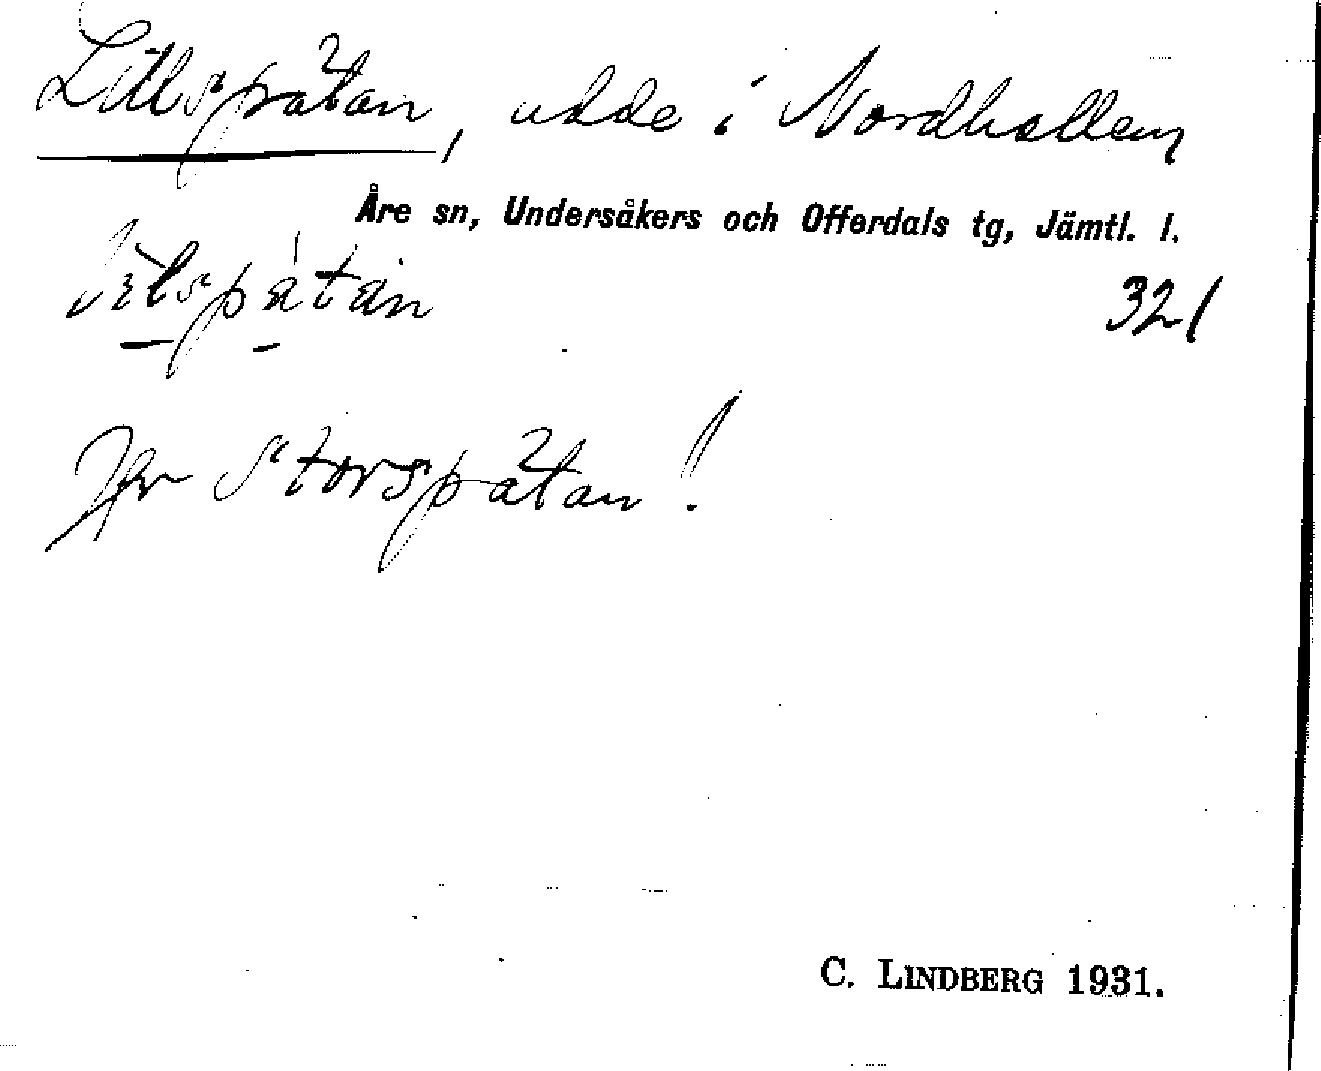 Lillspåtan, udde i Nordhallen
Åre sn, Undersåkers och Offerdals tg, Jämtl. l.
321
Jfr Storspåtan!
C. LINDBERG 1931.